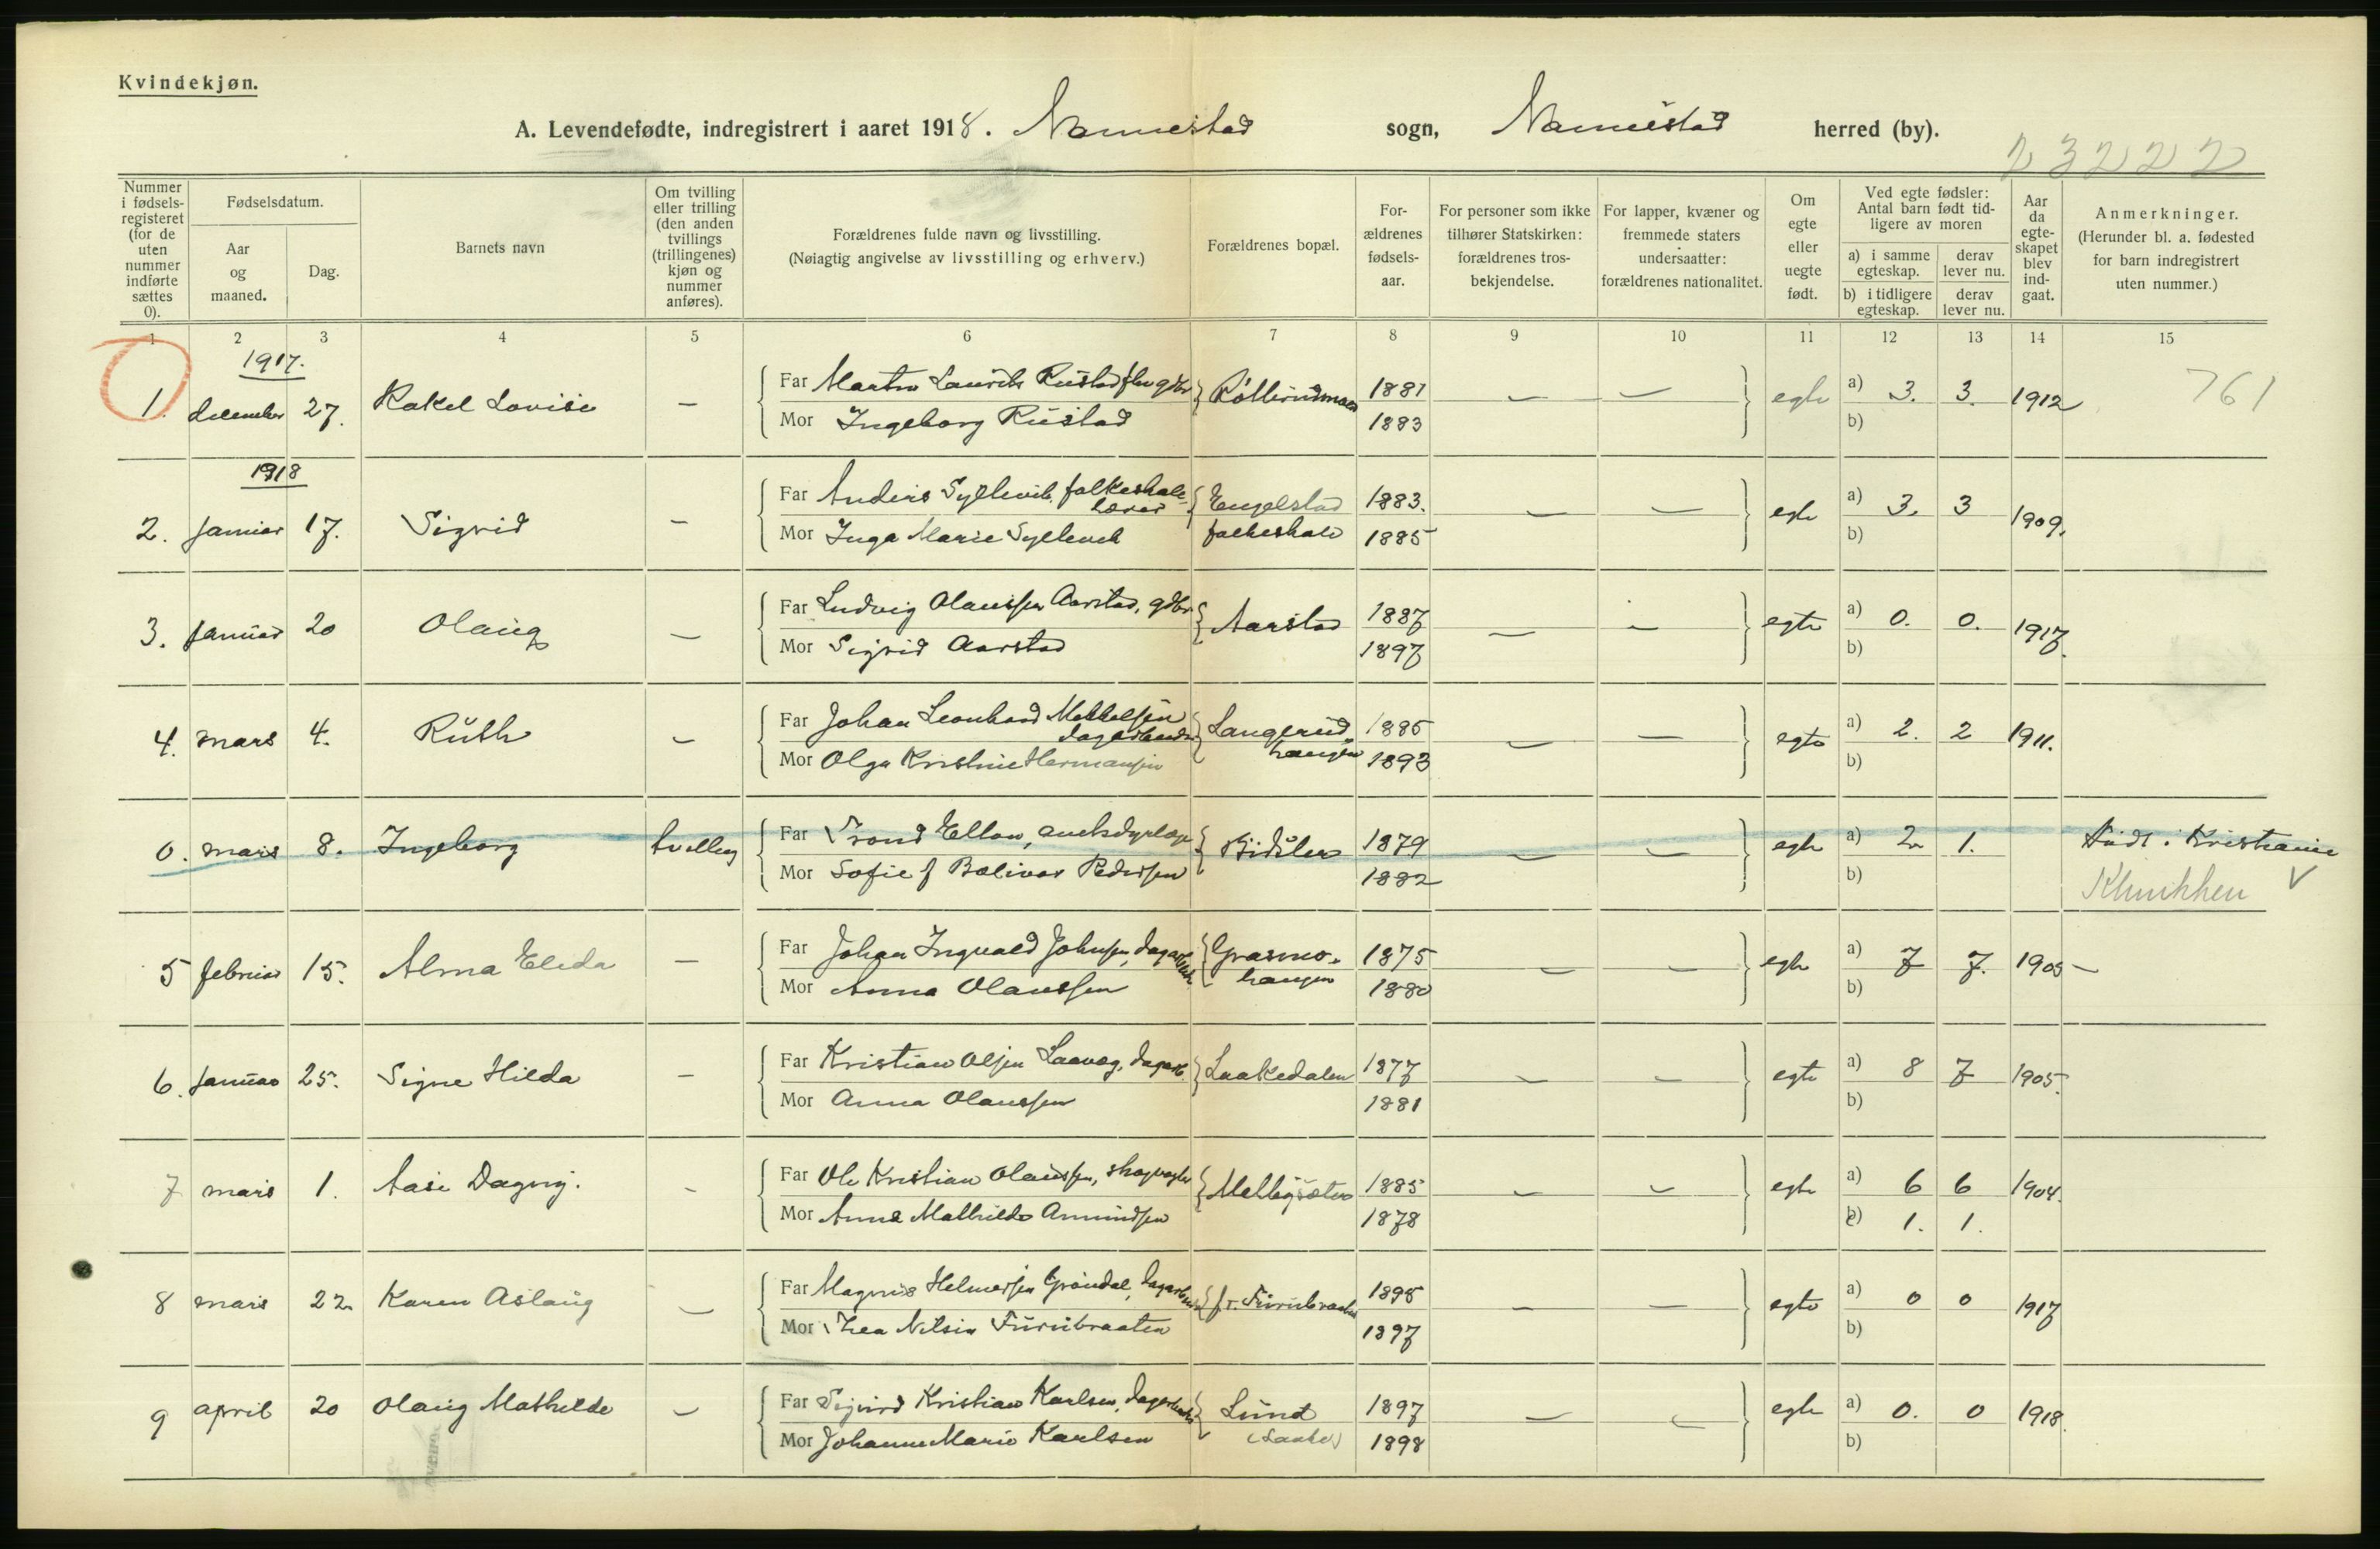 Kvindekjøn.
A. Levendefødte, indregistrert i aaret 1918. Nannestad sogn, Nannestad herred (by).
23222
Nummer i fødsels-registeret (for de uten nummer indførte sættes 0).
Fødselsdatum.
Aar og maaned.
Dag.
Barnets navn
Om tvilling eller trilling (den anden tvillings (trillingenes) kjøn og nummer anføres).
Forældrenes fulde navn og livsstilling.
(Nøiagtig angivelse av livsstilling og erhverv.)
Forældrenes bopæl.
For-ældrenes fødsels-aar.
For personer som ikke tilhører Statskirken: forældrenes tros-bekjendelse.
For lapper, kvæner og fremmede staters undersaatter: forældrenes nationalitet.
Om egte eller uegte født.
Ved egte fødsler: Antal barn født tid-ligere av moren
a) i samme egteskap.
derav lever nu.
b) i tidligere egteskap.
derav lever nu.
Aar da egte-skapet blev ind-gaat.
Anmerkninger.
(Herunder bl. a. fødested for barn indregistrert uten nummer.)
1 2 3 4 5 6 7 8 9 10 11 12 13 14 15
1917.
1. december 27. Rakel Lovise — Far Martin Laurits Rustad 1881 — — egte a) 3. 3. 1912 761
Mor Ingeborg Rustad 1883 b)
1918
2. Januar 17. Sigrid — Far Anders Syllevik, folkeskole- Engelstad 1883. — — egte a) 3. 3 1909.
lærer
Mor Inga Marie Syllevik folkeskole 1885 b)
3. Januar 20 Olaug — Far Ludvig Olaussen Aarstad, gdbr Aarstad 1887 — — egte a) 0. 0. 1917.
Mor Sigrid Aarstad 1897 b)
4. mars 4. Ruth — Far Johan Leonhard Mikkelsen Langerud- 1885 — — egte a) 2. 2 1911.
dagarbeider haugen
Mor Olga Kristine Hermansen 1893 b)
0. mars 8. Ingeborg tvilling Far Trond 1879 — — egte a) 2 1. Født i Kristiania
Mor Sofie f Bolivar Pedersen 1882 b) Klinikken V
5 februar 15. Alma Elida — Far Johan Ingvald Johnsen, dagarbeid Grasmo- 1875 — — egte a) 7 7. 1905
haugen
Mor Anna Olaussen 1880 b)
6. Januar 25. Signe Hilda — Far Kristian Olsen Laaveg, dagarb. Laakedalen 1877 — — egte a) 8 7 1905.
Mor Anna Olaussen 1881 b)
7 mars 1. Aase Dagny. - Far Ole Kristian Olaussen, skogvogter 1885 — — egte a) 6 6 1904.
Mor Anna Mathilde Amundsen 1878 b) 1. 1.
8 mars 22 Karen Aslaug — Far Magnus Helmersen Grøndal, dagarbeider 1895 — — egte a) 0 0 1917
Mor Thea Nilsen Furubraaten 1897 b)
9 april 20 Olaug Mathilde — Far Sigurd Kristian Karlsen, dagarbeider Lund 1897 — — egte a) 0. 0 1918.
Mor Johanne Marie Karlsen (Laake) 1898 b)